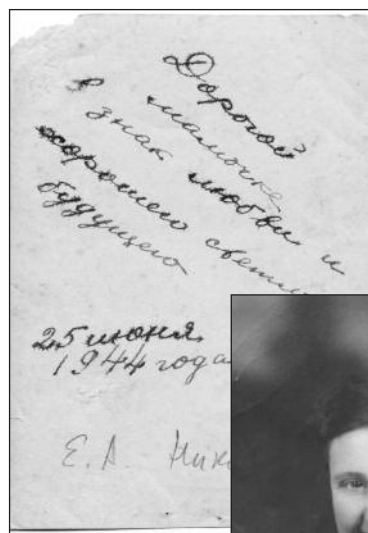 Дорогой
мамочке
в знак любви и
хорошего
будущего
25 июня
1944 года
Е. А.